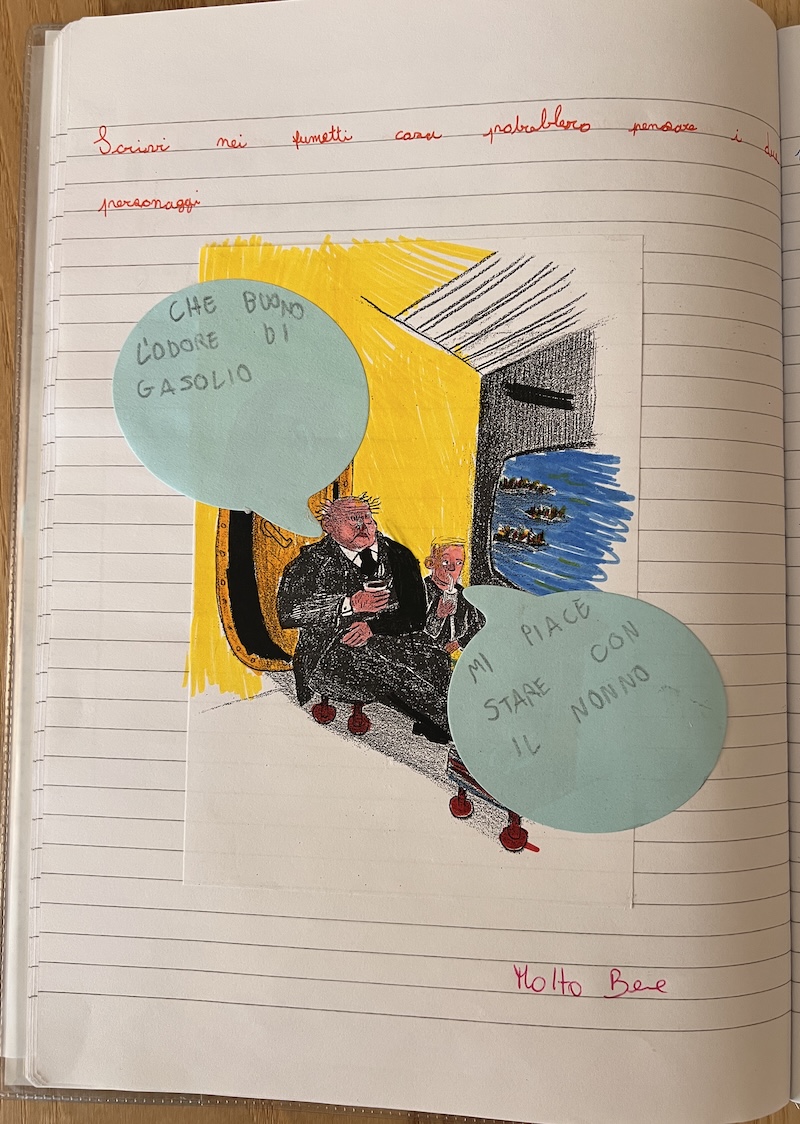 Scrivi nei fumetti cosa potrebbero pensare i due
personaggi
CHE BUONO
L'ODORE DI
GASOLIO
MI PIACE
STARE CON
IL NONNO
Molto Bene